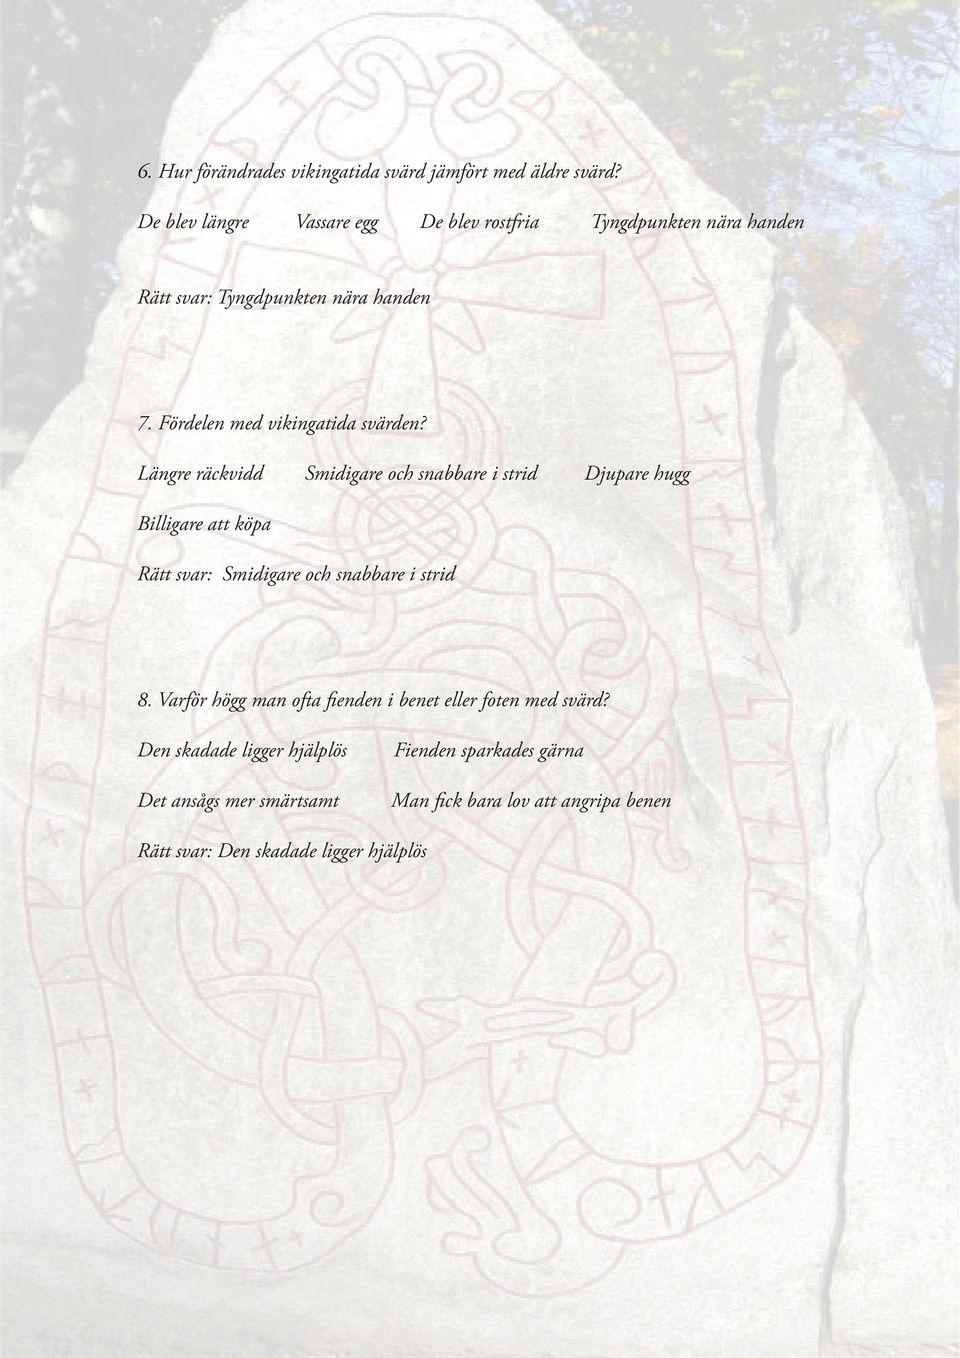 6. Hur förändrades vikingatida svärd jämfört med äldre svärd?
De blev längre Vassare egg De blev rostfria Tyngdpunkten nära handen
Rätt svar: Tyngdpunkten nära handen
7. Fördelen med vikingatida svärden?
Längre räckvidd Smidigare och snabbare i strid Djupare hugg
Billigare att köpa
Rätt svar: Smidigare och snabbare i strid
8. Varför högg man ofta fienden i benet eller foten med svärd?
Den skadade ligger hjälplös Fienden sparkades gärna
Det ansågs mer smärtsamt Man fick bara lov att angripa benen
Rätt svar: Den skadade ligger hjälplös